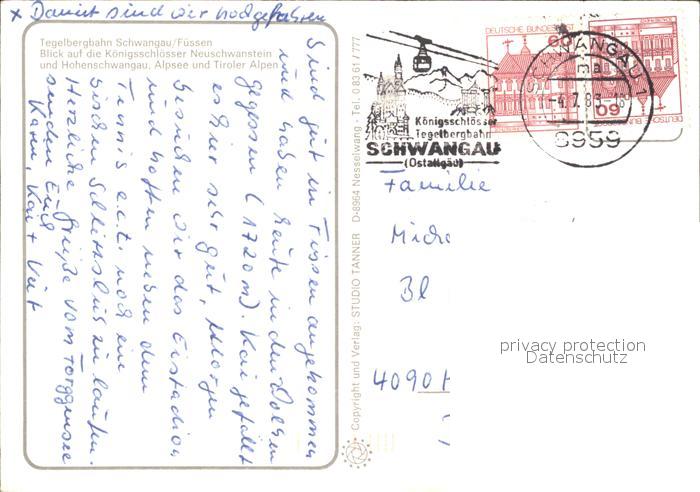 x Damit sind wir hochgefahren
Tegelbergbahn Schwangau/Füssen
Blick auf die Königsschlösser Neuschwanstein
und Hohenschwangau, Alpsee und Tiroler Alpen
Sind gut in Füssen angekommen
und haben heute in den Wolken
gegessen (1720 m). Kai gefällt
es hier sehr gut, Morgen
besuchen wir das Eisstadion
und hoffen neben dem
Tennis e.c.t. noch ein
bischen Schlittschuh zu laufen.
Herzliche Grüße vom Forggensee
senden Euch
Karin, Kai + Veit
Copyright und Verlag: STUDIO TANNER D-8964 Nesselwang - Tel. 0 83 61 / 777
Königsschlösser
Tegelbergbahn
SCHWANGAU
(Ostallgäu)
DEUTSCHE BUNDESPOST
60
DEUTSCHE BUNDESPOST
60
SCHWANGAU 1
ma
8959
Familie
Mich
Bl
4090 H
privacy protection
Datenschutz